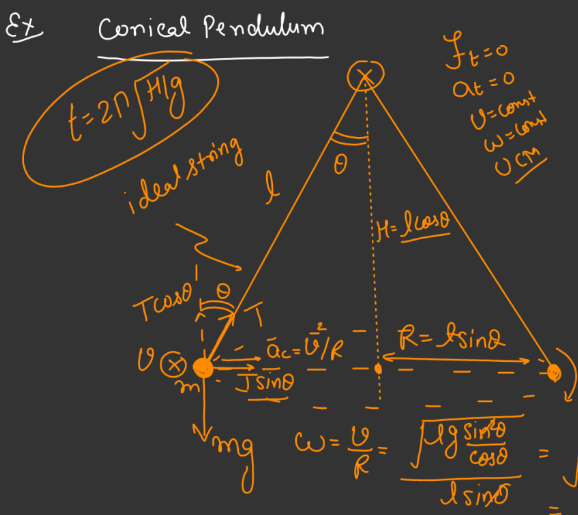 Ex Conical Pendulum
t=2π√H/g
F_t=0
a_t=0
v=const
ω=const
UCM
ideal string
l
θ
H=lcosθ
Tcosθ θ T
v
a_c=v²/R
R=lsinθ
m
Tsinθ
mg
ω = v/R = √(lg sin²θ/cosθ) / lsinθ = √
=